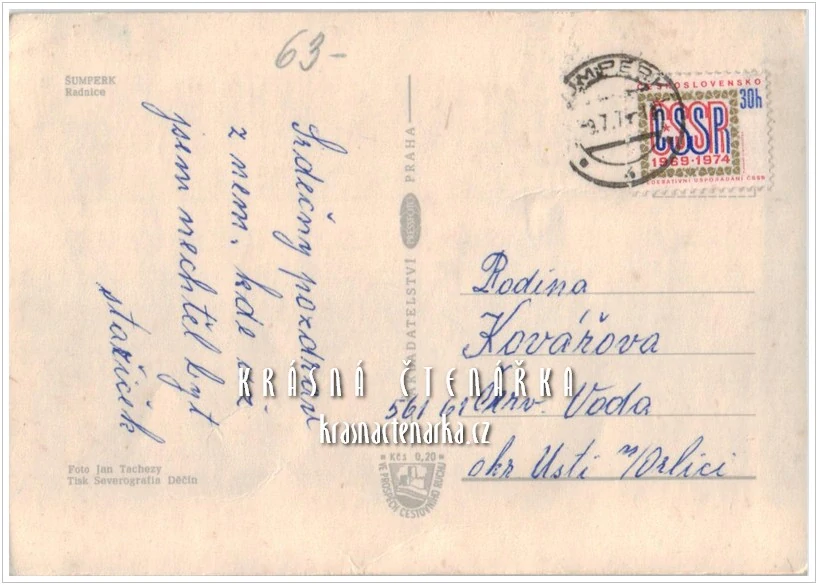 63-
ŠUMPERK
Radnice
Srdečný pozdrav
z nem. kde až
jsem nechtěl být
stařiček
NAKLADATELSTVÍ PRESSFOTO PRAHA
ŠUMPERK
9.7.7
ČESKOSLOVENSKO
30h
ČSSR
1969-1974
FEDERATIVNÍ USPOŘÁDÁNÍ ČSSR
Rodina
Kovářova
561 61 Červ. Voda
okr Ustí n/Orlicí
KRÁSNÁ ČTENÁŘKA
krasnactenarka.cz
Foto Jan Tachezy
Tisk Severografia Děčín
Kčs 0,20
VE PROSPĚCH CESTOVNÍHO RUCHU